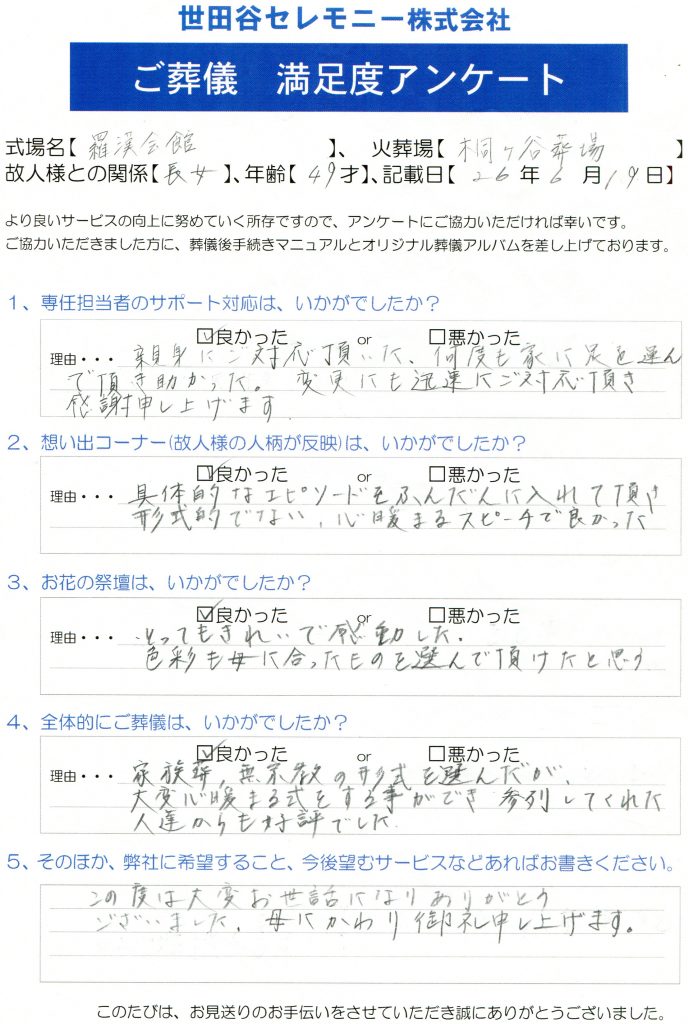 世田谷セレモニー株式会社
ご葬儀　満足度アンケート
式場名【 羅漢会館 】、 火葬場【 桐ヶ谷葬場 】
故人様との関係【 長女 】、年齢【 49才】、記載日【 26 年 6 月 19 日】
より良いサービスの向上に努めていく所存ですので、アンケートにご協力いただければ幸いです。
ご協力いただきました方に、葬儀後手続きマニュアルとオリジナル葬儀アルバムを差し上げております。
1、専任担当者のサポート対応は、いかがでしたか？
☑良かった or □悪かった
理由・・・ 親身にご対応頂いた、何度も家に足を運ん
で頂き助かった。 変更にも迅速にご対応頂き
感謝申し上げます
2、想い出コーナー(故人様の人柄が反映)は、いかがでしたか？
☑良かった or □悪かった
理由・・・ 具体的なエピソードをふんだんに入れて頂き
形式的でない、心暖まるスピーチで良かった
3、お花の祭壇は、いかがでしたか？
☑良かった or □悪かった
理由・・・ とってもきれいで感動した。
色彩も母に合ったものを選んで頂けたと思う
4、全体的にご葬儀は、いかがでしたか？
☑良かった or □悪かった
理由・・・ 家族葬、無宗教の形式を選んだが、
大変心暖まる式をする事ができ 参列してくれた
人達からも好評でした
5、そのほか、弊社に希望すること、今後望むサービスなどあればお書きください。
この度は大変お世話になりありがとう
ございました。母にかわり御礼申し上げます。
このたびは、お見送りのお手伝いをさせていただき誠にありがとうございました。